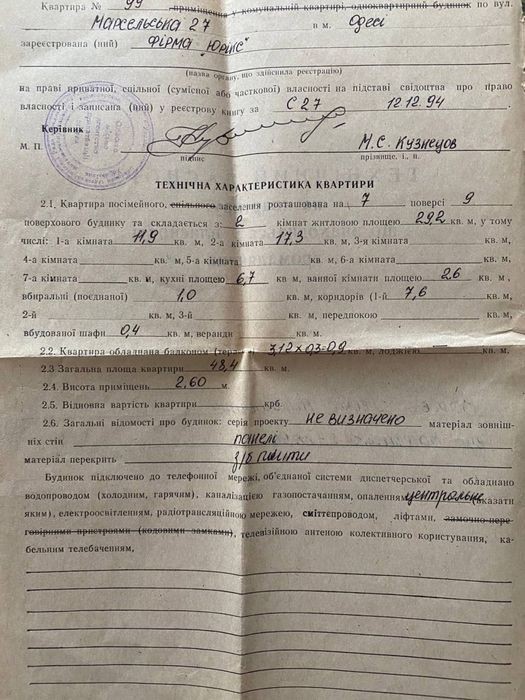 Квартира № 99 приміщення у комунальній квартирі, одноквартирний будинок по вул.
Марсельська 27 в м. Одесі
зареєстрована (ний) Фірма "Юрікс"
(назва органу, що здійснила реєстрацію)
на праві приватної, спільної (сумісної або часткової) власності на підставі свідоцтва про право
власності і записана (ний) у реєстрову книгу за С 27 12.12.94
Керівник
М. П. М.С. Кузнецов
підпис прізвище, і., п.
ТЕХНІЧНА ХАРАКТЕРИСТИКА КВАРТИРИ
2.1. Квартира посімейного, спільного заселення розташована на 7 поверсі 9
поверхового будинку та складається з: 2 кімнат житловою площею 29,2 кв. м, у тому
числі: 1-а кімната 11,9 кв. м, 2-а кімната 17,3 кв. м, 3-я кімната кв. м,
4-а кімната кв. м, 5-а кімната кв. м, 6-а кімната кв. м,
7-а кімната кв. м, кухні площею 6,7 кв. м, ванної кімнати площею 2,6 кв. м,
вбиральні (поєднаної) 1,0 кв. м, коридорів (1-й 7,6 кв. м,
2-й кв. м, 3-й кв. м, передпокою кв. м,
вбудованої шафи 0,4 кв. м, веранди кв. м.
2.2. Квартира обладнана балконом 3,12 x 0,3=0,9 кв. м, лоджією кв. м.
2.3 Загальна площа квартири 48,4 кв. м.
2.4. Висота приміщень 2,60 м.
2.5. Відновна вартість квартири крб.
2.6. Загальні відомості про будинок: серія проекту не визначено матеріал зовніш-
ніх стін панелі
матеріал перекрить з/б плити
Будинок підключено до телефонної мережі, об'єднаної системи диспетчерської та обладнано
водопроводом (холодним, гарячим), каналізацією газопостачанням, опаленням центральне (вказати
яким), електроосвітленням, радіотрансляційною мережею, сміттєпроводом, ліфтами, замочно-пере-
говірними пристроями (кодовими замками), телевізійною антеною колективного користування, ка-
бельним телебаченням,